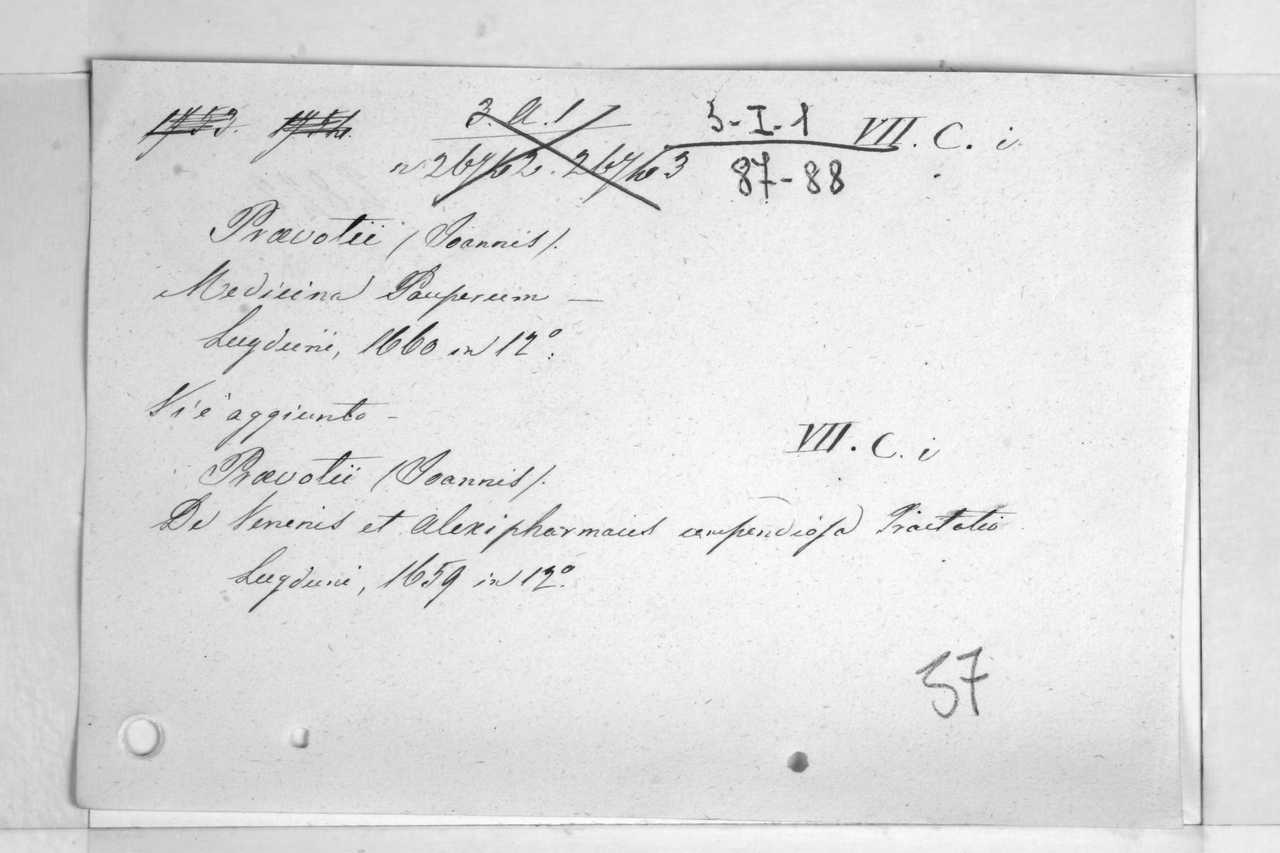 1753. 1754. 3. A. 1 5-I-1 VII. C. i.
n 26762. 26763 87-88
Prævotii (Joannis).
Medicina Pauperum —
Lugduni, 1660 in 12º.
Vi è aggiunto —
VII. C. i
Prævotii (Joannis).
De Venenis et Alexipharmacis compendiosa Tractatio
Lugduni, 1659 in 12º.
57